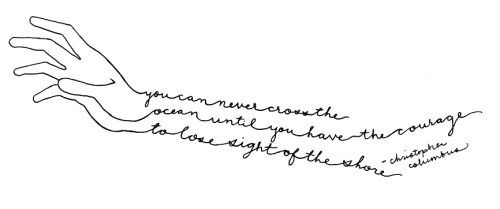 you can never cross the
ocean until you have the courage
to lose sight of the shore
-christopher
columbus